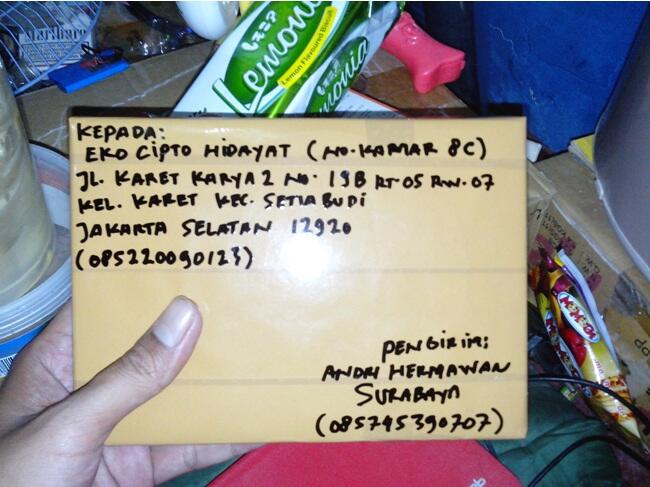 KEPADA:
EKO CIPTO HIDAYAT (NO. KAMAR 8C)
JL. KARET KARYA 2 NO. 19B RT 05 RW. 07
KEL. KARET KEC. SETIABUDI
JAKARTA SELATAN 12920
(085220090123)
PENGIRIM:
ANDRI HERMAWAN
SURABAYA
(085745390707)
Lemonia
Lemon Flavoured Biscuit
Lemonia